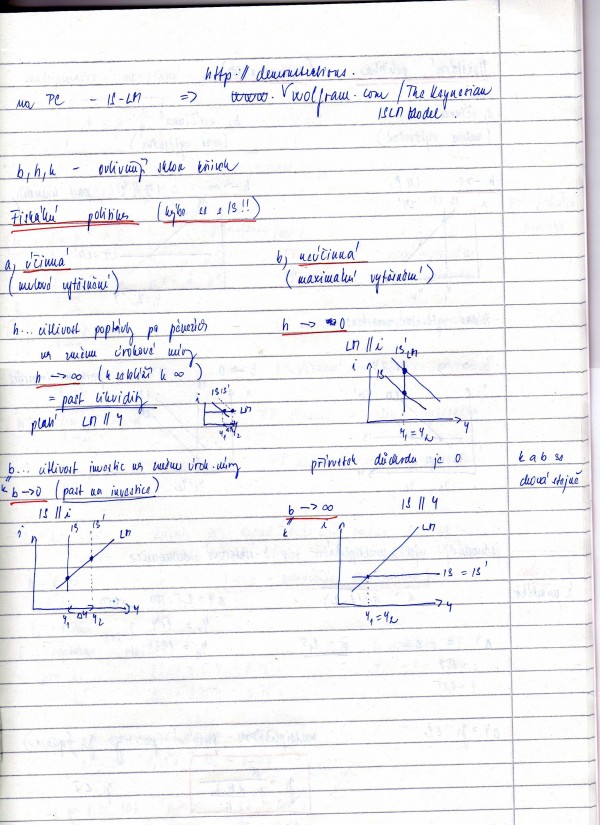 http:// demonstrations.
na PC - IS-LM => wolfram.com / The Keynesian
ISLM Model.
b, h, k - ovlivňují sklon křivek
Fiskální politika (hýbe se s IS!!)
a, účinná
(nulové vytěsnění)
b, neúčinná
(maximální vytěsnění)
h... citlivost poptávky po penězích
na změnu úrokové míry
h → ∞ (k se blíží k ∞)
= past likvidity
platí LM || Y
i IS IS' LM
Y1 ΔY Y2
h → 0
LM || i
i IS IS' LM
Y1 = Y2 Y
b... citlivost investic na změnu úrok. míry
k
b → 0 (past na investice)
IS || i
i IS IS' LM
Y1 ΔY Y2 Y
přírůstek důchodu je 0
b → ∞ IS || Y
k
i LM
IS = IS'
Y1 = Y2 Y
k a b se
chová stejně